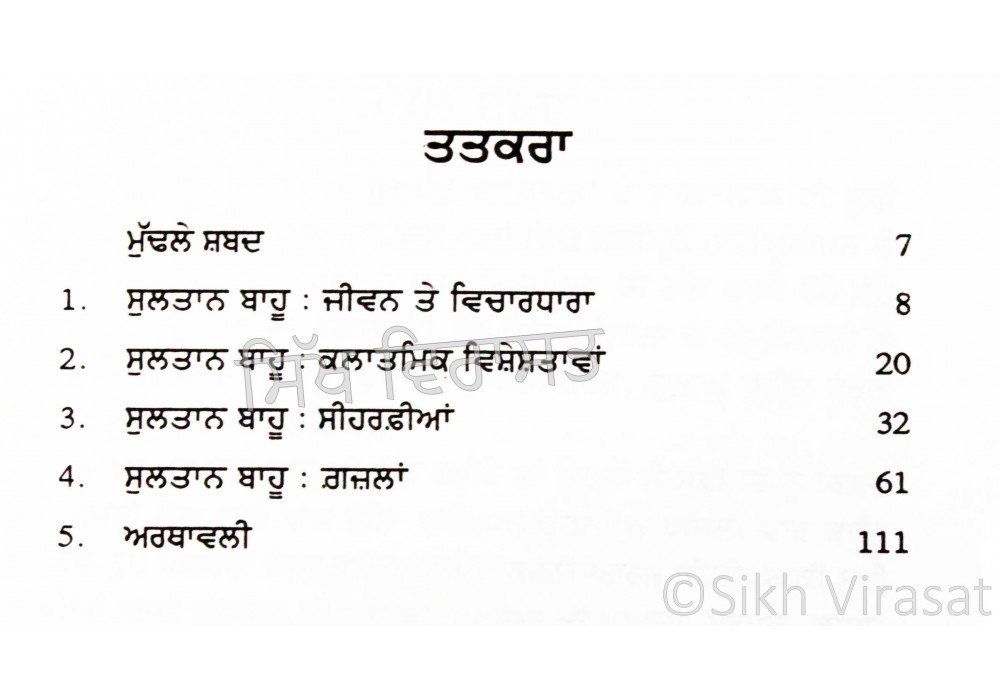 ਤਤਕਰਾ
ਮੁੱਢਲੇ ਸ਼ਬਦ 7
1. ਸੁਲਤਾਨ ਬਾਹੂ : ਜੀਵਨ ਤੇ ਵਿਚਾਰਧਾਰਾ 8
2. ਸੁਲਤਾਨ ਬਾਹੂ : ਕਲਾਤਮਿਕ ਵਿਸ਼ੇਸ਼ਤਾਵਾਂ 20
ਸਿੱਖ ਵਿਰਾਸਤ
3. ਸੁਲਤਾਨ ਬਾਹੂ : ਸੀਹਰਫ਼ੀਆਂ 32
4. ਸੁਲਤਾਨ ਬਾਹੂ : ਗ਼ਜ਼ਲਾਂ 61
5. ਅਰਥਾਵਲੀ 111
©Sikh Virasat